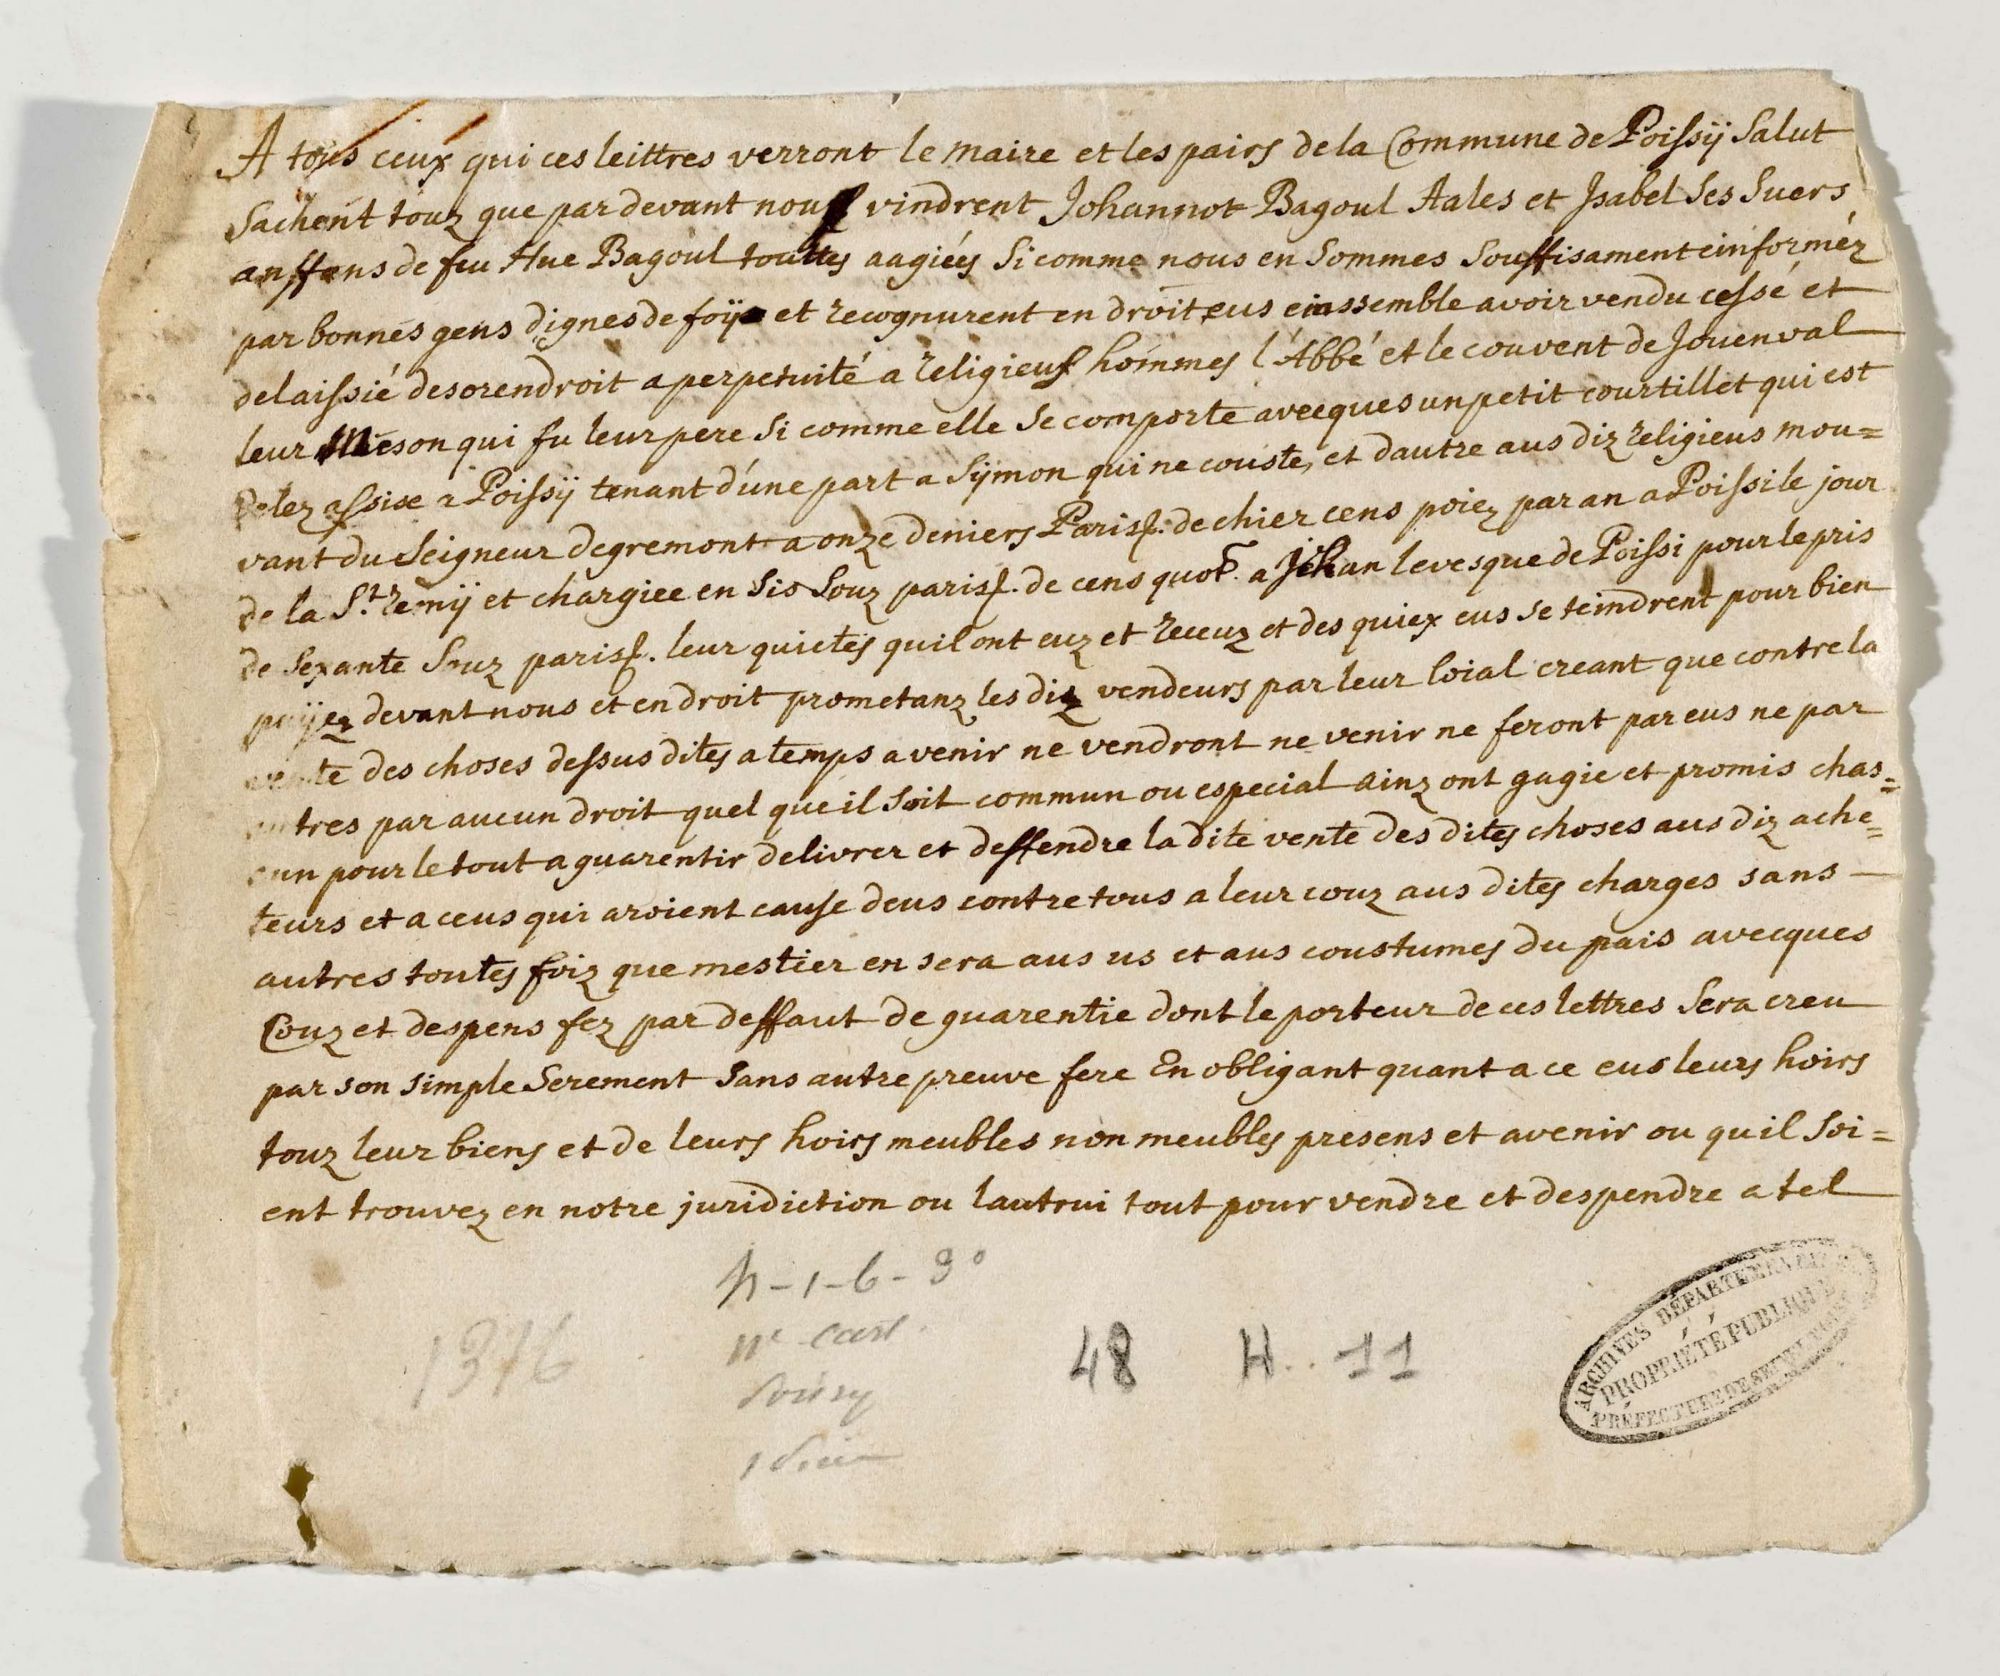 A tous ceux qui ces leittres verront le maire et les pairs de la Commune de Poissÿ Salut
Sachent touz que par devant nous vindrent Johannot Bagoul Aales et Isabel Ses Suers
anffans de feu Hue Bagoul touttes aagiéés Si comme nous en Sommes Souffisament einforméz
par bonnes gens dignes de foÿe et recognurent en droit eus einssemble avoir vendu cessé et
delaissié desorendroit a perpetuité a religieus hommes l'Abbé et le couvent de Jouenval
leur Meson qui fu leur pere Si comme elle Se comporte avecques un petit courtillet qui est
delez assise a Poissÿ tenant d'une part a Sÿmon qui ne couste, et dautre aus diz religieus mou=
vant du Seigneur degremont a onze deniers Paris. de chier cens poiez par an a Poissi le jour
de la St. remÿ et chargiee en Sis Souz paris. de cens quot. a Jehan levesque de Poissi pour le pris
de Sexante Souz paris. leur quictes quil ont euz et receuz et des quiex eus se teindrent pour bien
paÿez devant nous et en droit prometanz les diz vendeurs par leur loial creant que contre la
vente des choses dessus dites a temps avenir ne vendront ne venir ne feront par eus ne par
autres par aucun droit quel que il Soit commun ou especial ainz ont gagie et promis chas=
cun pour le tout a guarentir delivrer et deffendre la dite vente des dites choses aus diz ache=
teurs et a ceus qui aroient cause deus contre tous a leur couz aus dites charges sans
autres toutes foiz que mestier en sera aus us et aus coustumes du pais avecques
Couz et despens fez par deffaut de guarentie dont le porteur de ces lettres Sera creu
par son simple Serement Sans autre preuve fere En obligant quant a ce eus leurs hoirs
touz leur biens et de leurs hoirs meubles non meubles presens et avenir ou quil Soi=
ent trouvez en notre juridiction ou lautrui tout pour vendre et despendre a tel
1-6-3°
1316
48 H 11
ARCHIVES DÉPARTEMENTALES
PROPRIÉTÉ PUBLIQUE
PRÉFECTURE DE SEINE ET OISE